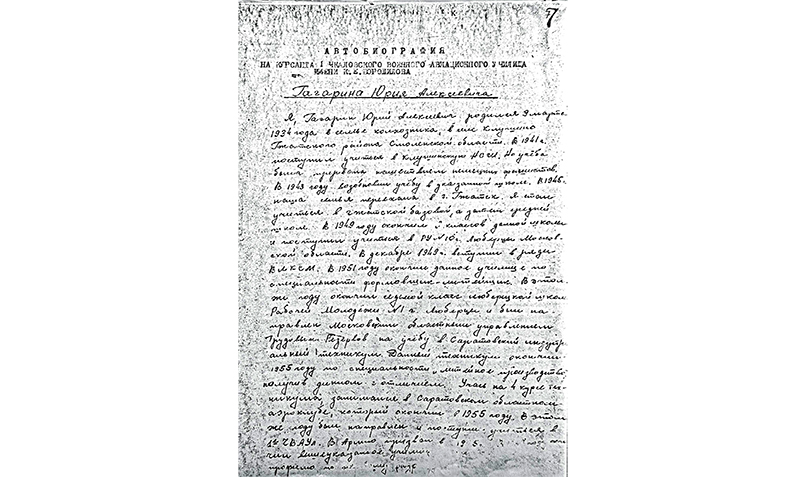 7
АВТОБИОГРАФИЯ
НА КУРСАНТА I ЧКАЛОВСКОГО ВОЕННОГО АВИАЦИОННОГО УЧИЛИЩА
ИМЕНИ К.Е. ВОРОШИЛОВА
Гагарина Юрия Алексеевича
Я, Гагарин Юрий Алексеевич, родился 9 марта
1934 года в семье колхозника, в селе Клушино
Гжатского района Смоленской области. В 1941 г.
поступил учиться в Клушинскую НСШ. Но учёба
была прервана нашествием немецких фашистов.
В 1943 году возобновил учёбу в указанной школе. В 1945 г.
наша семья переехала в г. Гжатск. Я стал
учиться в Гжатской базовой, а затем средней
школе. В 1949 году окончил классов данной школы
и поступил учиться в РУ №10 г. Люберцы Москов-
ской области. В декабре 1949 г. вступил в ряды
ВЛКСМ. В 1951 году окончил данное училище по
специальности формовщик-литейщик. В этом
же году окончил седьмой класс люберецкой школы
Рабочей Молодежи №1 г. Люберцы и был на-
правлен Московским областным управлением
Трудовых Резервов на учёбу в Саратовский индустри-
альный техникум. Данный техникум окончил
1955 году по специальности литейное производство,
получив диплом с отличием. Учась на 4 курсе тех-
никума, занимался в Саратовском областном
аэроклубе, который окончил в 1955 году. В этом
же году был направлен и поступил учиться в
1ое ЧВАУЛ. В Армию призван в 195
чил вышеуказанное училищ